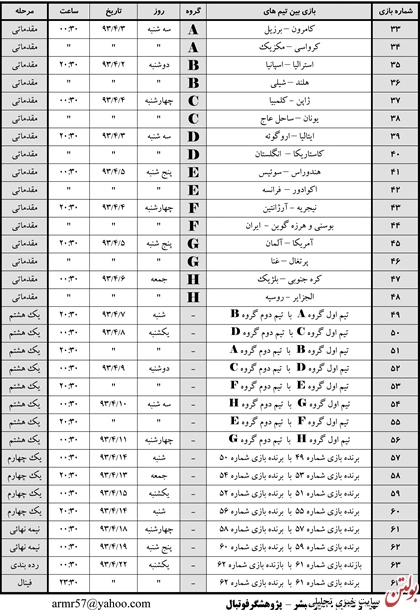 شماره بازی بازی بین تیم های گروه روز تاریخ ساعت مرحله
۳۳ کامرون – برزیل A سه شنبه ۹۳/۴/۳ ۰۰:۳۰ مقدماتی
۳۴ کرواسی – مکزیک A " " " مقدماتی
۳۵ استرالیا – اسپانیا B دوشنبه ۹۳/۴/۲ ۲۰:۳۰ مقدماتی
۳۶ هلند – شیلی B " " " مقدماتی
۳۷ ژاپن – کلمبیا C چهارشنبه ۹۳/۴/۴ ۰۰:۳۰ مقدماتی
۳۸ یونان – ساحل عاج C " " " مقدماتی
۳۹ ایتالیا – اروگوئه D سه شنبه ۹۳/۴/۳ ۲۰:۳۰ مقدماتی
۴۰ کاستاریکا – انگلستان D " " " مقدماتی
۴۱ هندوراس – سوئیس E پنج شنبه ۹۳/۴/۵ ۰۰:۳۰ مقدماتی
۴۲ اکوادور – فرانسه E " " " مقدماتی
۴۳ نیجریه – آرژانتین F چهارشنبه ۹۳/۴/۴ ۲۰:۳۰ مقدماتی
۴۴ بوسنی و هرزه گوین – ایران F " " " مقدماتی
۴۵ آمریکا – آلمان G پنج شنبه ۹۳/۴/۵ ۲۰:۳۰ مقدماتی
۴۶ پرتغال – غنا G " " " مقدماتی
۴۷ کره جنوبی – بلژیک H جمعه ۹۳/۴/۶ ۰۰:۳۰ مقدماتی
۴۸ الجزایر – روسیه H " " " مقدماتی
۴۹ تیم اول گروه A با تیم دوم گروه B - شنبه ۹۳/۴/۷ ۲۰:۳۰ یک هشتم
۵۰ تیم اول گروه C با تیم دوم گروه D - یکشنبه ۹۳/۴/۸ ۰۰:۳۰ یک هشتم
۵۱ تیم اول گروه B با تیم دوم گروه A - " " ۲۰:۳۰ یک هشتم
۵۲ تیم اول گروه D با تیم دوم گروه C - دوشنبه ۹۳/۴/۹ ۰۰:۳۰ یک هشتم
۵۳ تیم اول گروه E با تیم دوم گروه F - " " ۲۰:۳۰ یک هشتم
۵۴ تیم اول گروه G با تیم دوم گروه H - سه شنبه ۹۳/۴/۱۰ ۰۰:۳۰ یک هشتم
۵۵ تیم اول گروه F با تیم دوم گروه E - " " ۲۰:۳۰ یک هشتم
۵۶ تیم اول گروه H با تیم دوم گروه G - چهارشنبه ۹۳/۴/۱۱ ۰۰:۳۰ یک هشتم
۵۷ برنده بازی شماره ۴۹ با برنده بازی شماره ۵۰ - شنبه ۹۳/۴/۱۴ ۰۰:۳۰ یک چهارم
۵۸ برنده بازی شماره ۵۳ با برنده بازی شماره ۵۴ - جمعه ۹۳/۴/۱۳ ۲۰:۳۰ یک چهارم
۵۹ برنده بازی شماره ۵۱ با برنده بازی شماره ۵۲ - یکشنبه ۹۳/۴/۱۵ ۰۰:۳۰ یک چهارم
۶۰ برنده بازی شماره ۵۵ با برنده بازی شماره ۵۶ - شنبه ۹۳/۴/۱۴ ۲۰:۳۰ یک چهارم
۶۱ برنده بازی شماره ۵۷ با برنده بازی شماره ۵۸ - چهارشنبه ۹۳/۴/۱۸ ۰۰:۳۰ نیمه نهائی
۶۲ برنده بازی شماره ۵۹ با برنده بازی شماره ۶۰ - پنج شنبه ۹۳/۴/۱۹ ۰۰:۳۰ نیمه نهائی
۶۳ بازنده بازی شماره ۶۱ با بازنده بازی شماره ۶۲ - یکشنبه ۹۳/۴/۲۲ ۰۰:۳۰ رده بندی
برنده بازی شماره ۶۱ با برنده بازی شماره ۶۲ - " " ۲۳:۳۰ فینال
پژوهشگر فوتبال armr57@yahoo.com
بولتن
سایت خبری تحلیلی